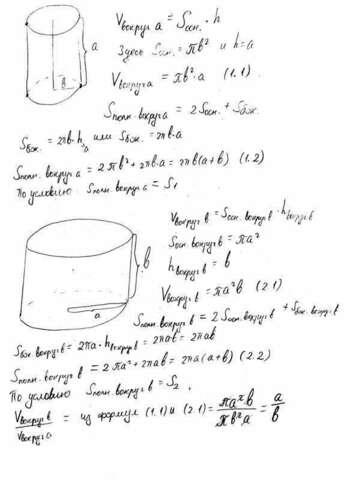 Vвокруг a = Sосн. · h
a
Здесь Sосн. = πb² и h=a
b
Vвокруг a = πb²·a (1.1)
Sполн. вокруг a = 2Sосн. + Sбж.
Sбж. = 2πb·h или Sбж. = 2πb·a
Sполн. вокруг a = 2πb² + 2πb·a = 2πb(a+b) (1.2)
По условию Sполн. вокруг a = S1
Vвокруг b = Sосн. вокруг b · hвокруг b
Sосн. вокруг b = πa²
b
hвокруг b = b
Vвокруг b = πa²b (2.1)
a
Sполн. вокруг b = 2Sосн. вокруг b + Sбж. вокруг b
Sбж вокруг b = 2πa · hвокруг b = 2πab = 2πab
Sполн. вокруг b = 2πa² + 2πab = 2πa(a+b) (2.2)
По условию Sполн. вокруг b = S2.
Vвокруг b / Vвокруг a = из формул (1.1) и (2.1) = πa²b / πb²a = a / b